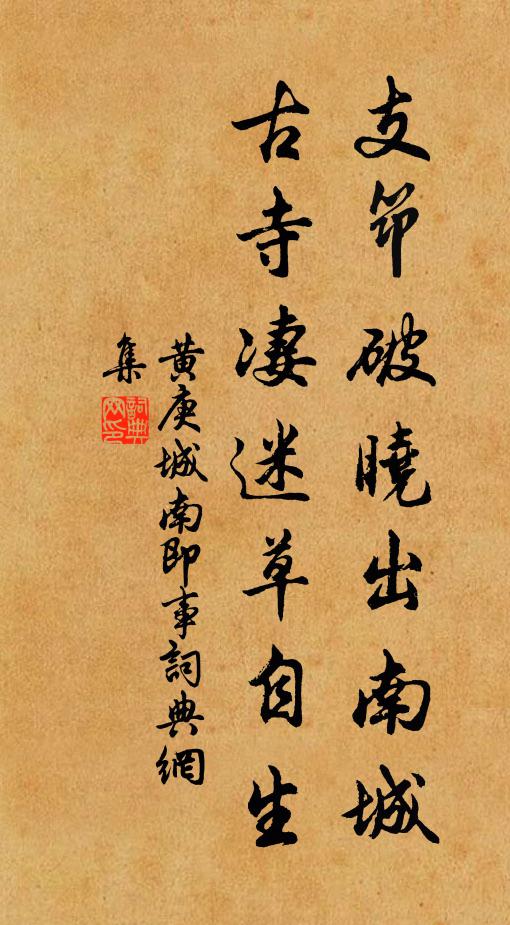 支筇破曉出南城
古寺凄迷草自生
黃庚城南即事詞典網
集
詞典
網印